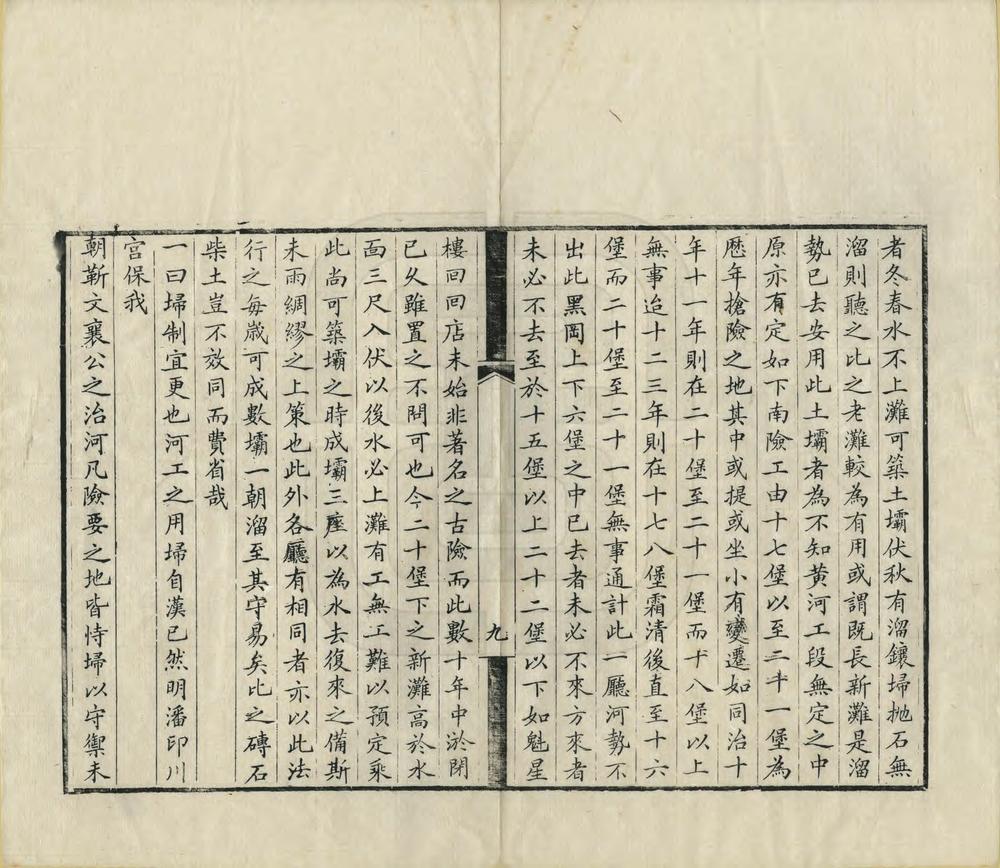 者冬春水不上灘可築土壩伏秋有溜鑲埽抛石無
溜則聽之此之老灘較為有用或謂既長新灘是溜
勢已去安用此土壩者為不知黄河工段無定之中
原亦有定如下南險工由十七堡以至二十一堡為
歴年搶險之地其中或提或坐小有變遷如同治十
年十一年則在二十堡至二十一堡而十八堡以上
無事迨十二三年則在十七八堡霜清後直至十六
堡而二十堡至二十一堡無事通計此一廳河勢不
出此黑岡上下六堡之中已去者未必不來方來者
未必不去至於十五堡以上二十二堡以下如魁星
九
樓回回店未始非著名之古險而此數十年中淤閉
已久雖置之不問可也今二十堡下之新灘高於水
面三尺入伏以後水必上灘有工無工難以預定乘
此尚可築壩之時成壩三座以為水去復來之備斯
未雨綢繆之上策也此外各廳有相同者亦以此法
行之每歲可成數壩一朝溜至其守易矣比之磚石
柴土豈不效同而費省哉
一曰埽制宜更也河工之用埽自漢已然明潘印川
宮保我
朝靳文襄公之治河凡險要之地皆恃埽以守禦未